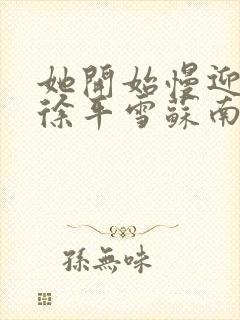 她開始慢迎
徐平雪蘇南
孫無味